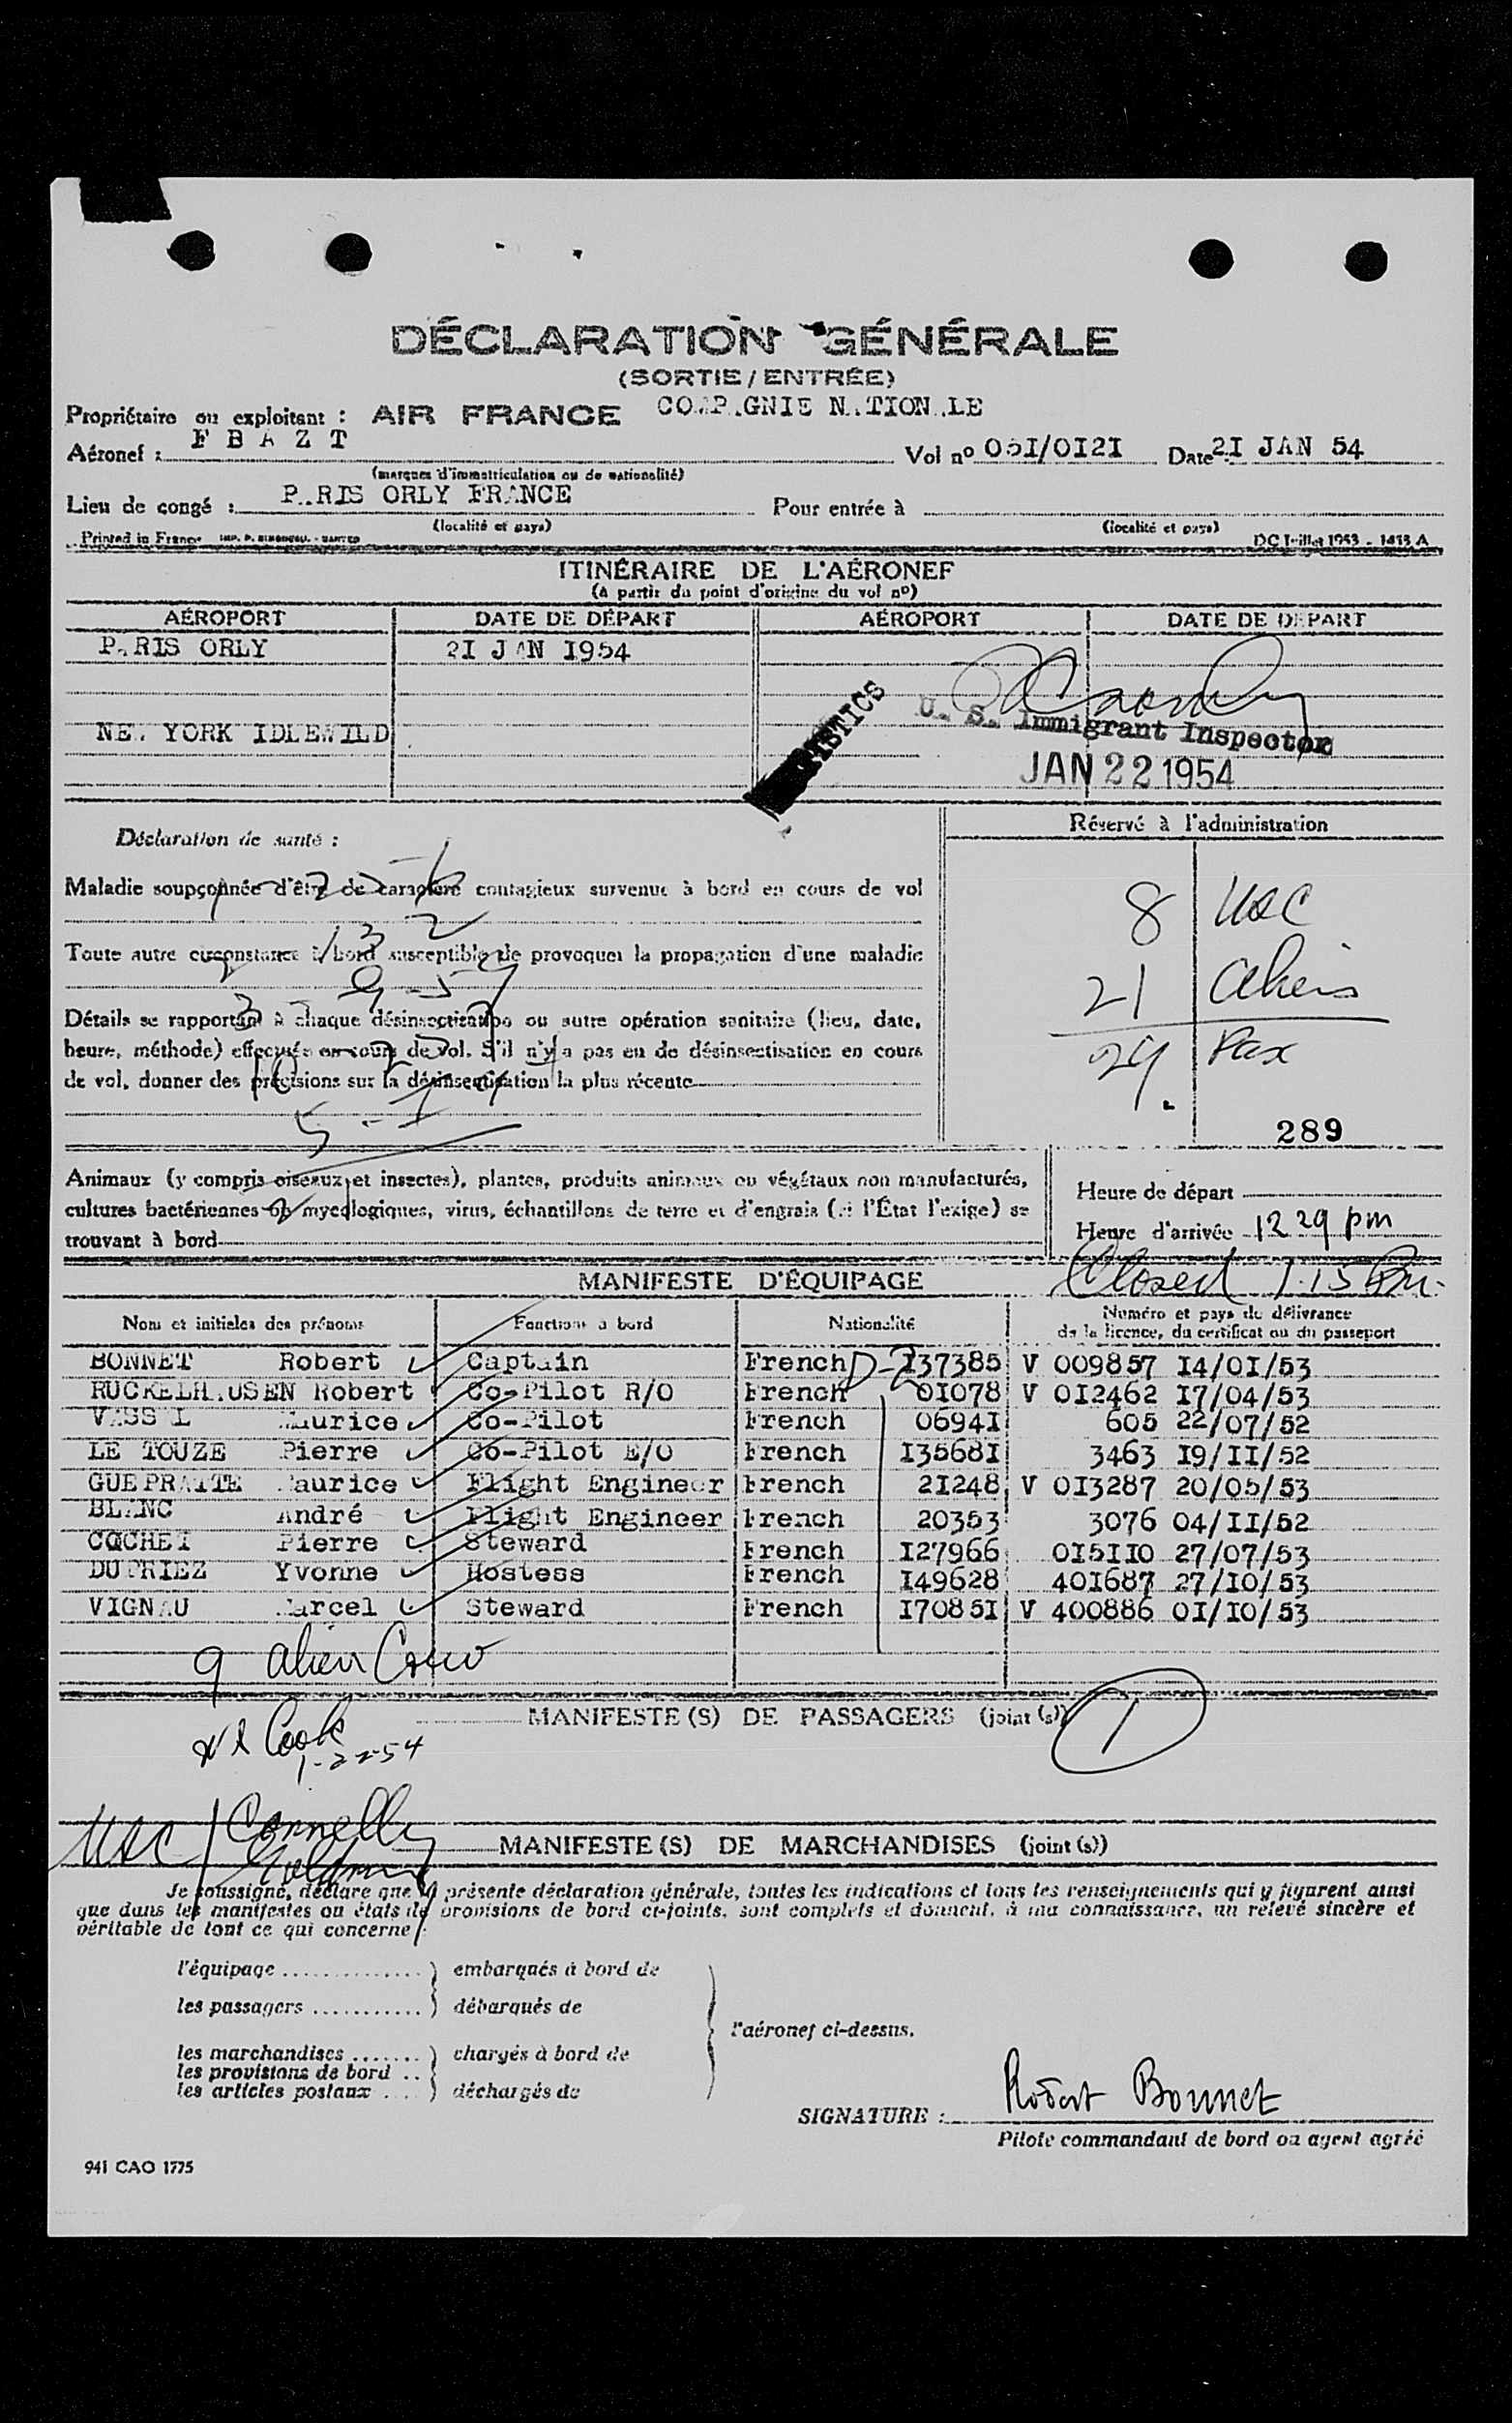 DÉCLARATION GÉNÉRALE
(SORTIE / ENTRÉE)
Propriétaire ou exploitant : AIR FRANCE COMPAGNIE NATIONALE
Aéronef : F B A Z T Vol nº 051/0121 Date 21 JAN 54
(marques d'immatriculation ou de nationalité)
Lieu de congé : PARIS ORLY FRANCE Pour entrée à
(localité et pays) (localité et pays)
Printed in France DC Juillet 1953 - 1413 A
ITINÉRAIRE DE L'AÉRONEF
(à partir du point d'origine du vol nº)
AÉROPORT DATE DE DÉPART AÉROPORT DATE DE DÉPART
PARIS ORLY 21 JAN 1954
NEW YORK IDLEWILD
U. S. Immigrant Inspector
JAN 22 1954
Déclaration de santé :
Réservé à l'administration
Maladie soupçonnée d'être de caractère contagieux survenue à bord en cours de vol
8 USC
Toute autre circonstance à bord susceptible de provoquer la propagation d'une maladie
21 aliens
Détails se rapportant à chaque désinsectisation ou autre opération sanitaire (lieu, date,
heure, méthode) effectuée en cours de vol. S'il n'y a pas eu de désinsectisation en cours
de vol, donner des précisions sur la désinsectisation la plus récente
29 Pax
289
Animaux (y compris oiseaux et insectes), plantes, produits animaux ou végétaux non manufacturés,
cultures bactériennes ou mycologiques, virus, échantillons de terre et d'engrais (si l'État l'exige) se
trouvant à bord
Heure de départ
Heure d'arrivée 12 29 pm
Closed 1.15 Pm.
MANIFESTE D'ÉQUIPAGE
Nom et initiales des prénoms Fonctions à bord Nationalité Numéro et pays de délivrance
de la licence, du certificat ou du passeport
BONNET Robert Captain French D-2 137385 V 009857 14/01/53
RUCKELHAUSEN Robert Co-Pilot R/O French 01078 V 012462 17/04/53
Maurice Co-Pilot French 06941 605 22/07/52
LE TOUZE Pierre Co-Pilot E/O French 135681 3463 19/11/52
GUEPRATTE Maurice Flight Engineer French 21248 V 013287 20/05/53
BLANC André Flight Engineer French 20353 3076 04/11/52
COCHET Pierre Steward French 127966 015110 27/07/53
DUFRIEZ Yvonne Hostess French 149628 401687 27/10/53
VIGNAU Marcel Steward French 170851 V 400886 01/10/53
9 alien Crew
MANIFESTE (S) DE PASSAGERS (joint (s)) 1
Cook
1-22-54
USC / Connelly
MANIFESTE (S) DE MARCHANDISES (joint (s))
Je soussigné, déclare que la présente déclaration générale, toutes les indications et tous les renseignements qui y figurent ainsi
que dans les manifestes ou états de provisions de bord ci-joints, sont complets et donnent, à ma connaissance, un relevé sincère et
véritable de tout ce qui concerne :
l'équipage .............. ) embarqués à bord de
les passagers ........... ) débarqués de
l'aéronef ci-dessus.
les marchandises ....... ) chargés à bord de
les provisions de bord ..
les articles postaux .... ) déchargés de
SIGNATURE : Robert Bonnet
Pilote commandant de bord ou agent agréé
941 CAO 1775